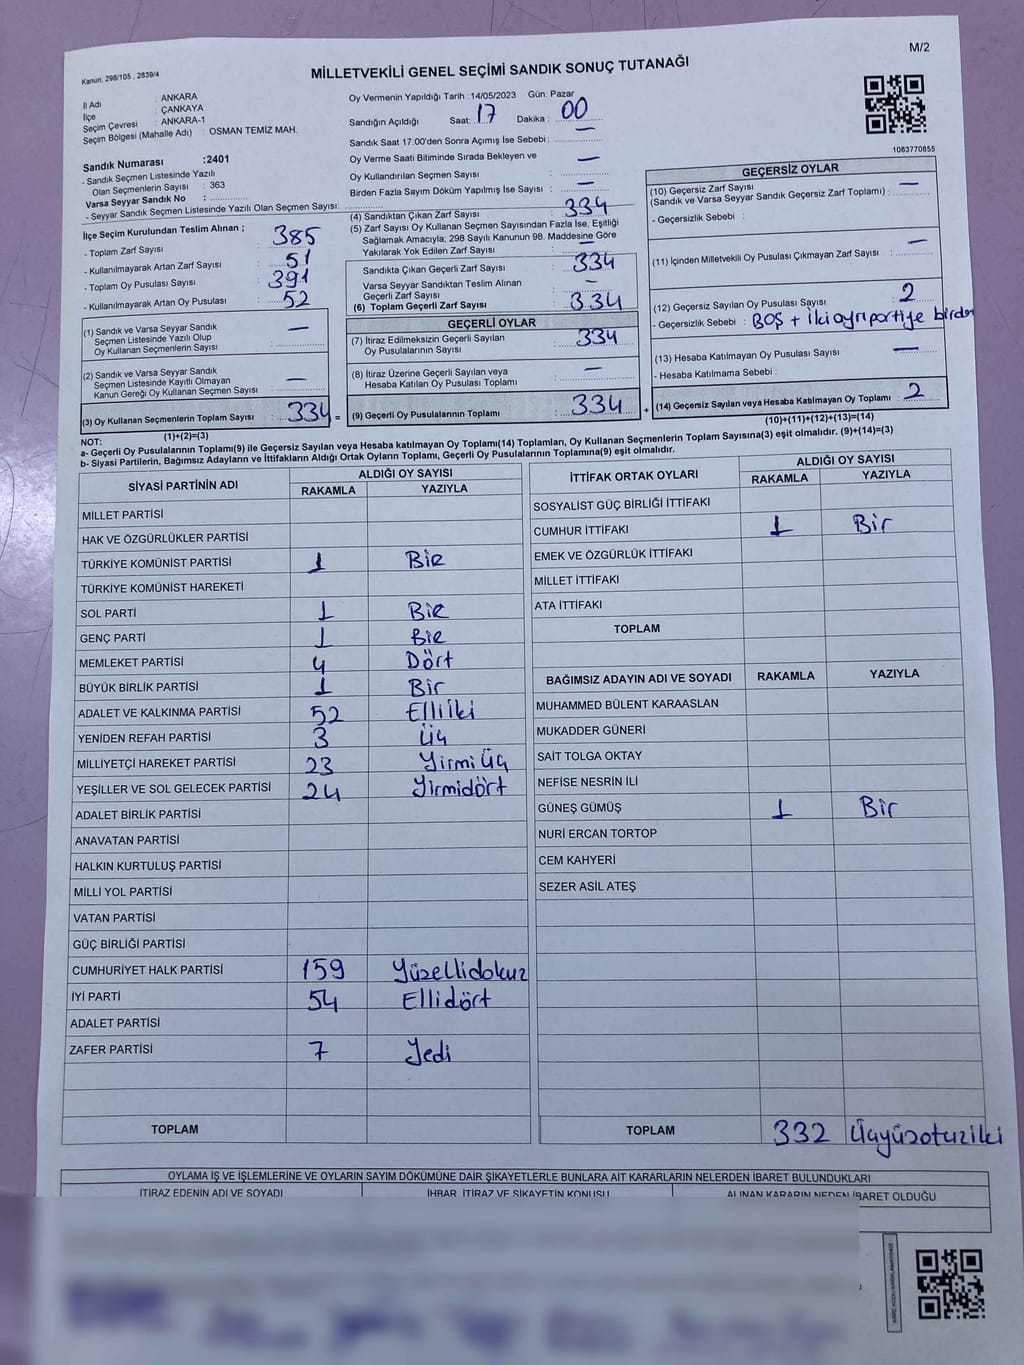 M/2
Kanun, 298/105 , 2839/4
MİLLETVEKİLİ GENEL SEÇİMİ SANDIK SONUÇ TUTANAĞI
İl Adı : ANKARA
İlçe : ÇANKAYA
Seçim Çevresi : ANKARA-1
Seçim Bölgesi (Mahalle Adı) : OSMAN TEMİZ MAH.
Sandık Numarası :2401
- Sandık Seçmen Listesinde Yazılı
Olan Seçmenlerin Sayısı : 363
Varsa Seyyar Sandık No :
- Seyyar Sandık Seçmen Listesinde Yazılı Olan Seçmen Sayısı:
Oy Vermenin Yapıldığı Tarih :14/05/2023 Gün: Pazar
Sandığın Açıldığı Saat: 17 Dakika : 00
Sandık Saat 17:00'den Sonra Açımış İse Sebebi : —
Oy Verme Saati Bitiminde Sırada Bekleyen ve
Oy Kullandırılan Seçmen Sayısı : —
Birden Fazla Sayım Döküm Yapılmış İse Sayısı : —
İlçe Seçim Kurulundan Teslim Alınan ;
- Toplam Zarf Sayısı : 385
- Kullanılmayarak Artan Zarf Sayısı : 51
- Toplam Oy Pusulası Sayısı : 391
- Kullanılmayarak Artan Oy Pusulası : 52
(1) Sandık ve Varsa Seyyar Sandık
Seçmen Listesinde Yazılı Olup
Oy Kullanan Seçmenlerin Sayısı : —
(2) Sandık ve Varsa Seyyar Sandık
Seçmen Listesinde Kayıtlı Olmayan
Kanun Gereği Oy Kullanan Seçmen Sayısı : —
(3) Oy Kullanan Seçmenlerin Toplam Sayısı : 334 =
(1)+(2)=(3)
(4) Sandıktan Çıkan Zarf Sayısı : 334
(5) Zarf Sayısı Oy Kullanan Seçmen Sayısından Fazla İse, Eşitliği
Sağlamak Amacıyla; 298 Sayılı Kanunun 98. Maddesine Göre
Yakılarak Yok Edilen Zarf Sayısı : —
Sandıkta Çıkan Geçerli Zarf Sayısı : 334
Varsa Seyyar Sandıktan Teslim Alınan
Geçerli Zarf Sayısı : —
(6) Toplam Geçerli Zarf Sayısı : 334
GEÇERLİ OYLAR
(7) İtiraz Edilmeksizin Geçerli Sayılan
Oy Pusulalarının Sayısı : 334
(8) İtiraz Üzerine Geçerli Sayılan veya
Hesaba Katılan Oy Pusulası Toplamı : —
(9) Geçerli Oy Pusulalarının Toplamı : 334 +
1083770855
GEÇERSİZ OYLAR
(10) Geçersiz Zarf Sayısı
(Sandık ve Varsa Seyyar Sandık Geçersiz Zarf Toplamı) : —
- Geçersizlik Sebebi :
(11) İçinden Milletvekili Oy Pusulası Çıkmayan Zarf Sayısı : —
(12) Geçersiz Sayılan Oy Pusulası Sayısı : 2
- Geçersizlik Sebebi : BOŞ + iki ayrı partiye birden
(13) Hesaba Katılmayan Oy Pusulası Sayısı : —
- Hesaba Katılmama Sebebi :
(14) Geçersiz Sayılan veya Hesaba Katılmayan Oy Toplamı : 2
(10)+(11)+(12)+(13)=(14)
NOT:
a- Geçerli Oy Pusulalarının Toplamı(9) ile Geçersiz Sayılan veya Hesaba katılmayan Oy Toplamı(14) Toplamları, Oy Kullanan Seçmenlerin Toplam Sayısına(3) eşit olmalıdır. (9)+(14)=(3)
b- Siyasi Partilerin, Bağımsız Adayların ve İttifakların Aldığı Ortak Oyların Toplamı, Geçerli Oy Pusulalarının Toplamına(9) eşit olmalıdır.
SİYASİ PARTİNİN ADI ALDIĞI OY SAYISI
RAKAMLA YAZIYLA
MİLLET PARTİSİ
HAK VE ÖZGÜRLÜKLER PARTİSİ
TÜRKİYE KOMÜNİST PARTİSİ 1 Bir
TÜRKİYE KOMÜNİST HAREKETİ
SOL PARTİ 1 Bir
GENÇ PARTİ 1 Bir
MEMLEKET PARTİSİ 4 Dört
BÜYÜK BİRLİK PARTİSİ 1 Bir
ADALET VE KALKINMA PARTİSİ 52 Elliiki
YENİDEN REFAH PARTİSİ 3 Üç
MİLLİYETÇİ HAREKET PARTİSİ 23 Yirmi Üç
YEŞİLLER VE SOL GELECEK PARTİSİ 24 Yirmidört
ADALET BİRLİK PARTİSİ
ANAVATAN PARTİSİ
HALKIN KURTULUŞ PARTİSİ
MİLLİ YOL PARTİSİ
VATAN PARTİSİ
GÜÇ BİRLİĞİ PARTİSİ
CUMHURİYET HALK PARTİSİ 159 Yüzellidokuz
İYİ PARTİ 54 Ellidört
ADALET PARTİSİ
ZAFER PARTİSİ 7 Yedi
TOPLAM
İTTİFAK ORTAK OYLARI ALDIĞI OY SAYISI
RAKAMLA YAZIYLA
SOSYALİST GÜÇ BİRLİĞİ İTTİFAKI
CUMHUR İTTİFAKI 1 Bir
EMEK VE ÖZGÜRLÜK İTTİFAKI
MİLLET İTTİFAKI
ATA İTTİFAKI
TOPLAM
BAĞIMSIZ ADAYIN ADI VE SOYADI RAKAMLA YAZIYLA
MUHAMMED BÜLENT KARAASLAN
MUKADDER GÜNERİ
SAİT TOLGA OKTAY
NEFİSE NESRİN İLİ
GÜNEŞ GÜMÜŞ 1 Bir
NURİ ERCAN TORTOP
CEM KAHYERİ
SEZER ASİL ATEŞ
TOPLAM 332 Üçyüzotuziki
OYLAMA İŞ VE İŞLEMLERİNE VE OYLARIN SAYIM DÖKÜMÜNE DAİR ŞİKAYETLERLE BUNLARA AİT KARARLARIN NELERDEN İBARET BULUNDUKLARI
İTİRAZ EDENİN ADI VE SOYADI İHBAR, İTİRAZ VE ŞİKAYETİN KONUSU ALINAN KARARIN NEDEN İBARET OLDUĞU